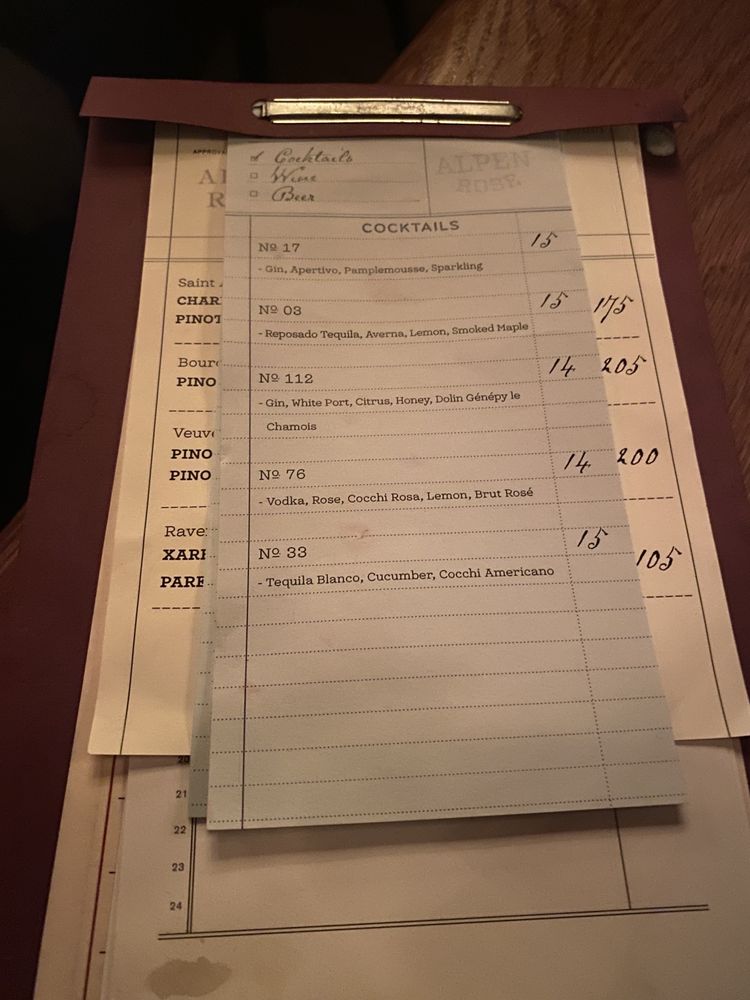 Cocktails
Wine
Beer
ALPEN
ROSE.
COCKTAILS
Nº 17 15
- Gin, Apertivo, Pamplemousse, Sparkling
Nº 03 15
- Reposado Tequila, Averna, Lemon, Smoked Maple
Nº 112 14
- Gin, White Port, Citrus, Honey, Dolin Génépy le
Chamois
Nº 76 14
- Vodka, Rose, Cocchi Rosa, Lemon, Brut Rosé
Nº 33 15
- Tequila Blanco, Cucumber, Cocchi Americano
Saint
175
Bour
205
PINO
200
PINO
PINO
105
21
22
23
24